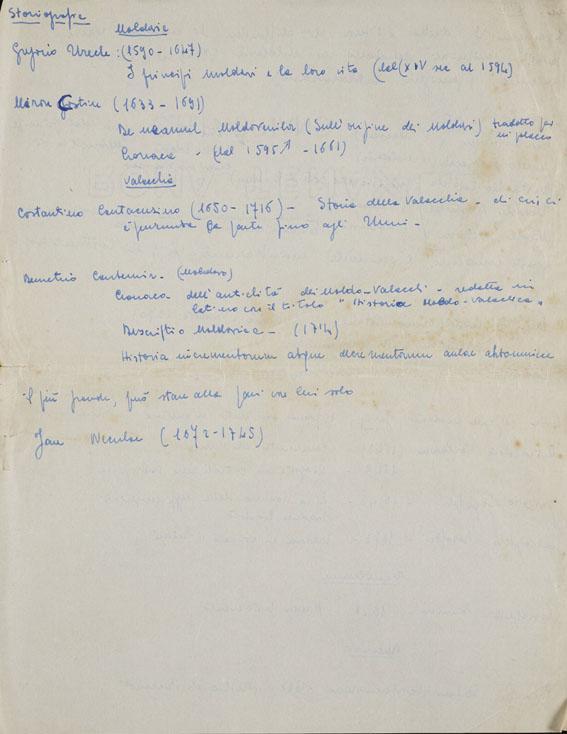 Storiografia
Moldavia
Gregorio Ureche : (1590 - 1647)
I principi moldavi e la loro vita (dal XIV sec al 1594)
Miron Costin (1633 - 1691)
De neamul Moldovenilor (Sull'origine dei Moldavi) tradotto
in polacco
Cronaca - (dal 1595 - 1661)
Valacchia
Costantino Cantacusino (1650 - 1716) - Storia della Valacchia - di cui ci
è pervenuta la parte fino agli Unni -
Demetrio Cantemir - (Moldavo)
Cronaca dell'antichità dei Moldo-Valacchi - redatta in
latino con il titolo "Historia Moldo-Valachica"
Descriptio Moldavica - (1714)
Historia incrementorum atque decrementorum aulae
il più grande, può stare alla pari con lui solo
Jon Neculce (1672 - 1745)